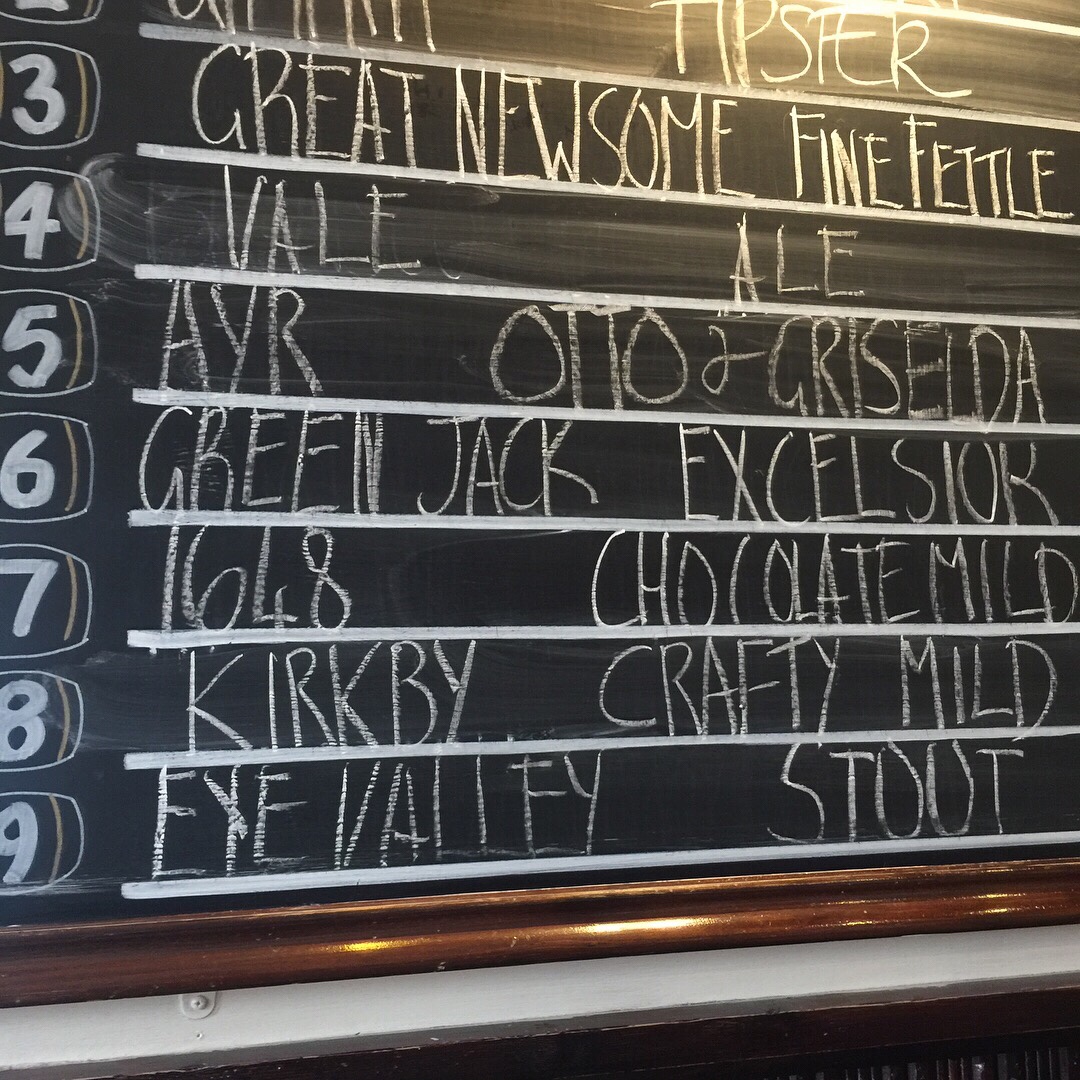 TIPSTER
3 GREAT NEWSOME FINE FETTLE
4 VALE ALE
5 AYR OTTO & GRISELDA
6 GREEN JACK EXCELSIOR
7 1648 CHOCOLATE MILD
8 KIRKBY CRAFTY MILD
9 EYE VALLEY STOUT